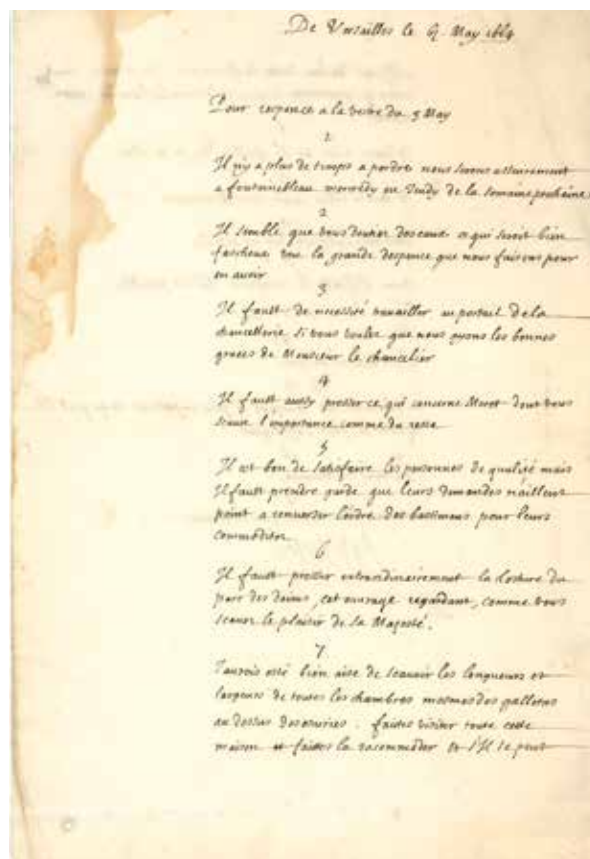 De Versailles le 9 May 1664
Pour responce a la vostre du 5 May
1
Il n'y a plus de temps a perdre nous serons asseurement
a fontainebleau mercredy ou Jeudy de la semaine prochaine
2
Il semble que vous doutiez des eaux ce qui seroit bien
fascheux veu la grande despence que nous faisons pour
en avoir
3
Il fault de necessité travailler au portail de la
chancellerie si vous voulez que nous ayons les bonnes
graces de Monsieur le chancelier
4
Il fault aussy presser ce qui concerne Moret dont vous
scavez l'importance comme du reste
5
Il est bon de satisfaire les personnes de qualité mais
Il fault prendre garde que leurs demandes n'aillent
point a renverser l'ordre des bastimens pour leurs
commoditez
6
Il fault presser extraordinairement la closture du
parc des daims, cet ouvrage regardant, comme vous
scavez le plaisir de sa Majesté.
7
J'aurois esté bien aise de scavoir les longueurs et
largeurs de toutes les chambres mesmes des galletas
au dessus des escuries. faites visiter toute cette
maison et faittes la racommoder et s'Il se peut